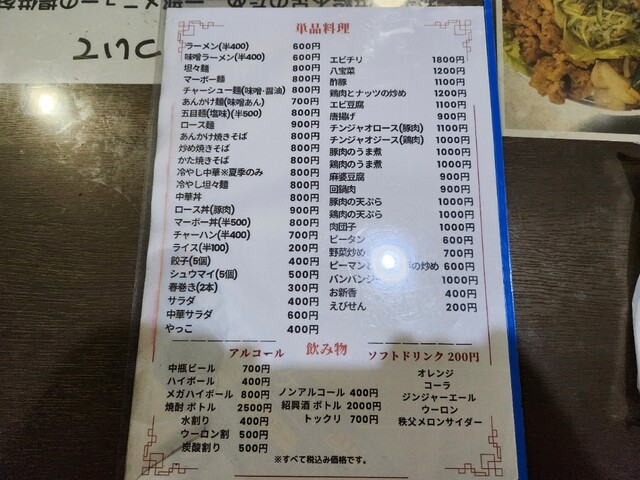 単品料理
ラーメン(半400) 600円
味噌ラーメン(半400) 600円
坦々麺 800円
マーボー麺 800円
チャーシュー麺(味噌·醤油) 800円
あんかけ麺(味噌あん) 700円
五目麺(塩味)(半500) 800円
ロース麺 900円
あんかけ焼きそば 800円
炒め焼きそば 800円
かた焼きそば 800円
冷やし中華※夏季のみ 800円
冷やし坦々麺 800円
中華丼 800円
ロース丼(豚肉) 900円
マーボー丼(半500) 800円
チャーハン(半400) 700円
ライス(半100) 200円
餃子(5個) 400円
シュウマイ(5個) 500円
春巻き(2本) 300円
サラダ 400円
中華サラダ 600円
やっこ 400円
エビチリ 1800円
八宝菜 1200円
酢豚 1100円
鶏肉とナッツの炒め 1200円
エビ豆腐 1100円
唐揚げ 900円
チンジャオロース(豚肉) 1100円
チンジャオジース(鶏肉) 1000円
豚肉のうま煮 1000円
鶏肉のうま煮 1000円
麻婆豆腐 900円
回鍋肉 900円
豚肉の天ぷら 1000円
鶏肉の天ぷら 1000円
肉団子 1000円
ピータン 600円
野菜炒め 700円
ピーマンと の炒め 600円
バンバンジー 1000円
お新香 400円
えびせん 200円
飲み物
アルコール
中瓶ビール 700円
ハイボール 400円
メガハイボール 800円
焼酎 ボトル 2500円
水割り 400円
ウーロン割 500円
炭酸割り 500円
ノンアルコール 400円
紹興酒 ボトル 2000円
トックリ 700円
ソフトドリンク 200円
オレンジ
コーラ
ジンジャーエール
ウーロン
秩父メロンサイダー
※すべて税込み価格です。